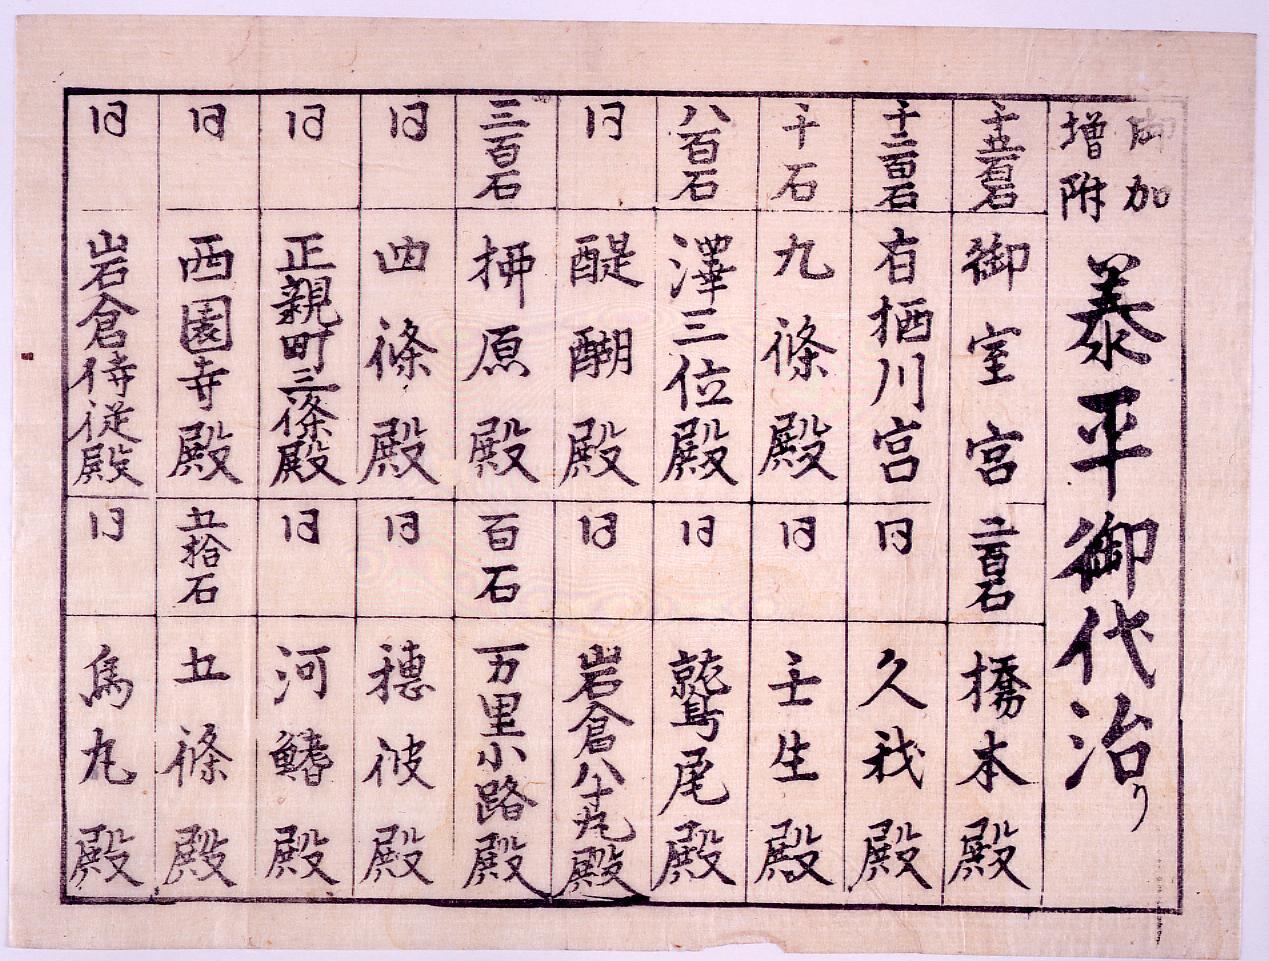 御加
増附
泰平御代治り
千五百石
御室宮
千二百石
有栖川宮
千石
九條殿
八百石
澤三位殿
同
醍醐殿
三百石
栁原殿
同
四條殿
同
正親町三條殿
同
西園寺殿
同
岩倉侍従殿
二百石
橋本殿
同
久我殿
同
壬生殿
同
鷲尾殿
同
岩倉八十丸殿
百石
万里小路殿
同
穂彼殿
同
河鰭殿
五拾石
五條殿
同
烏丸殿